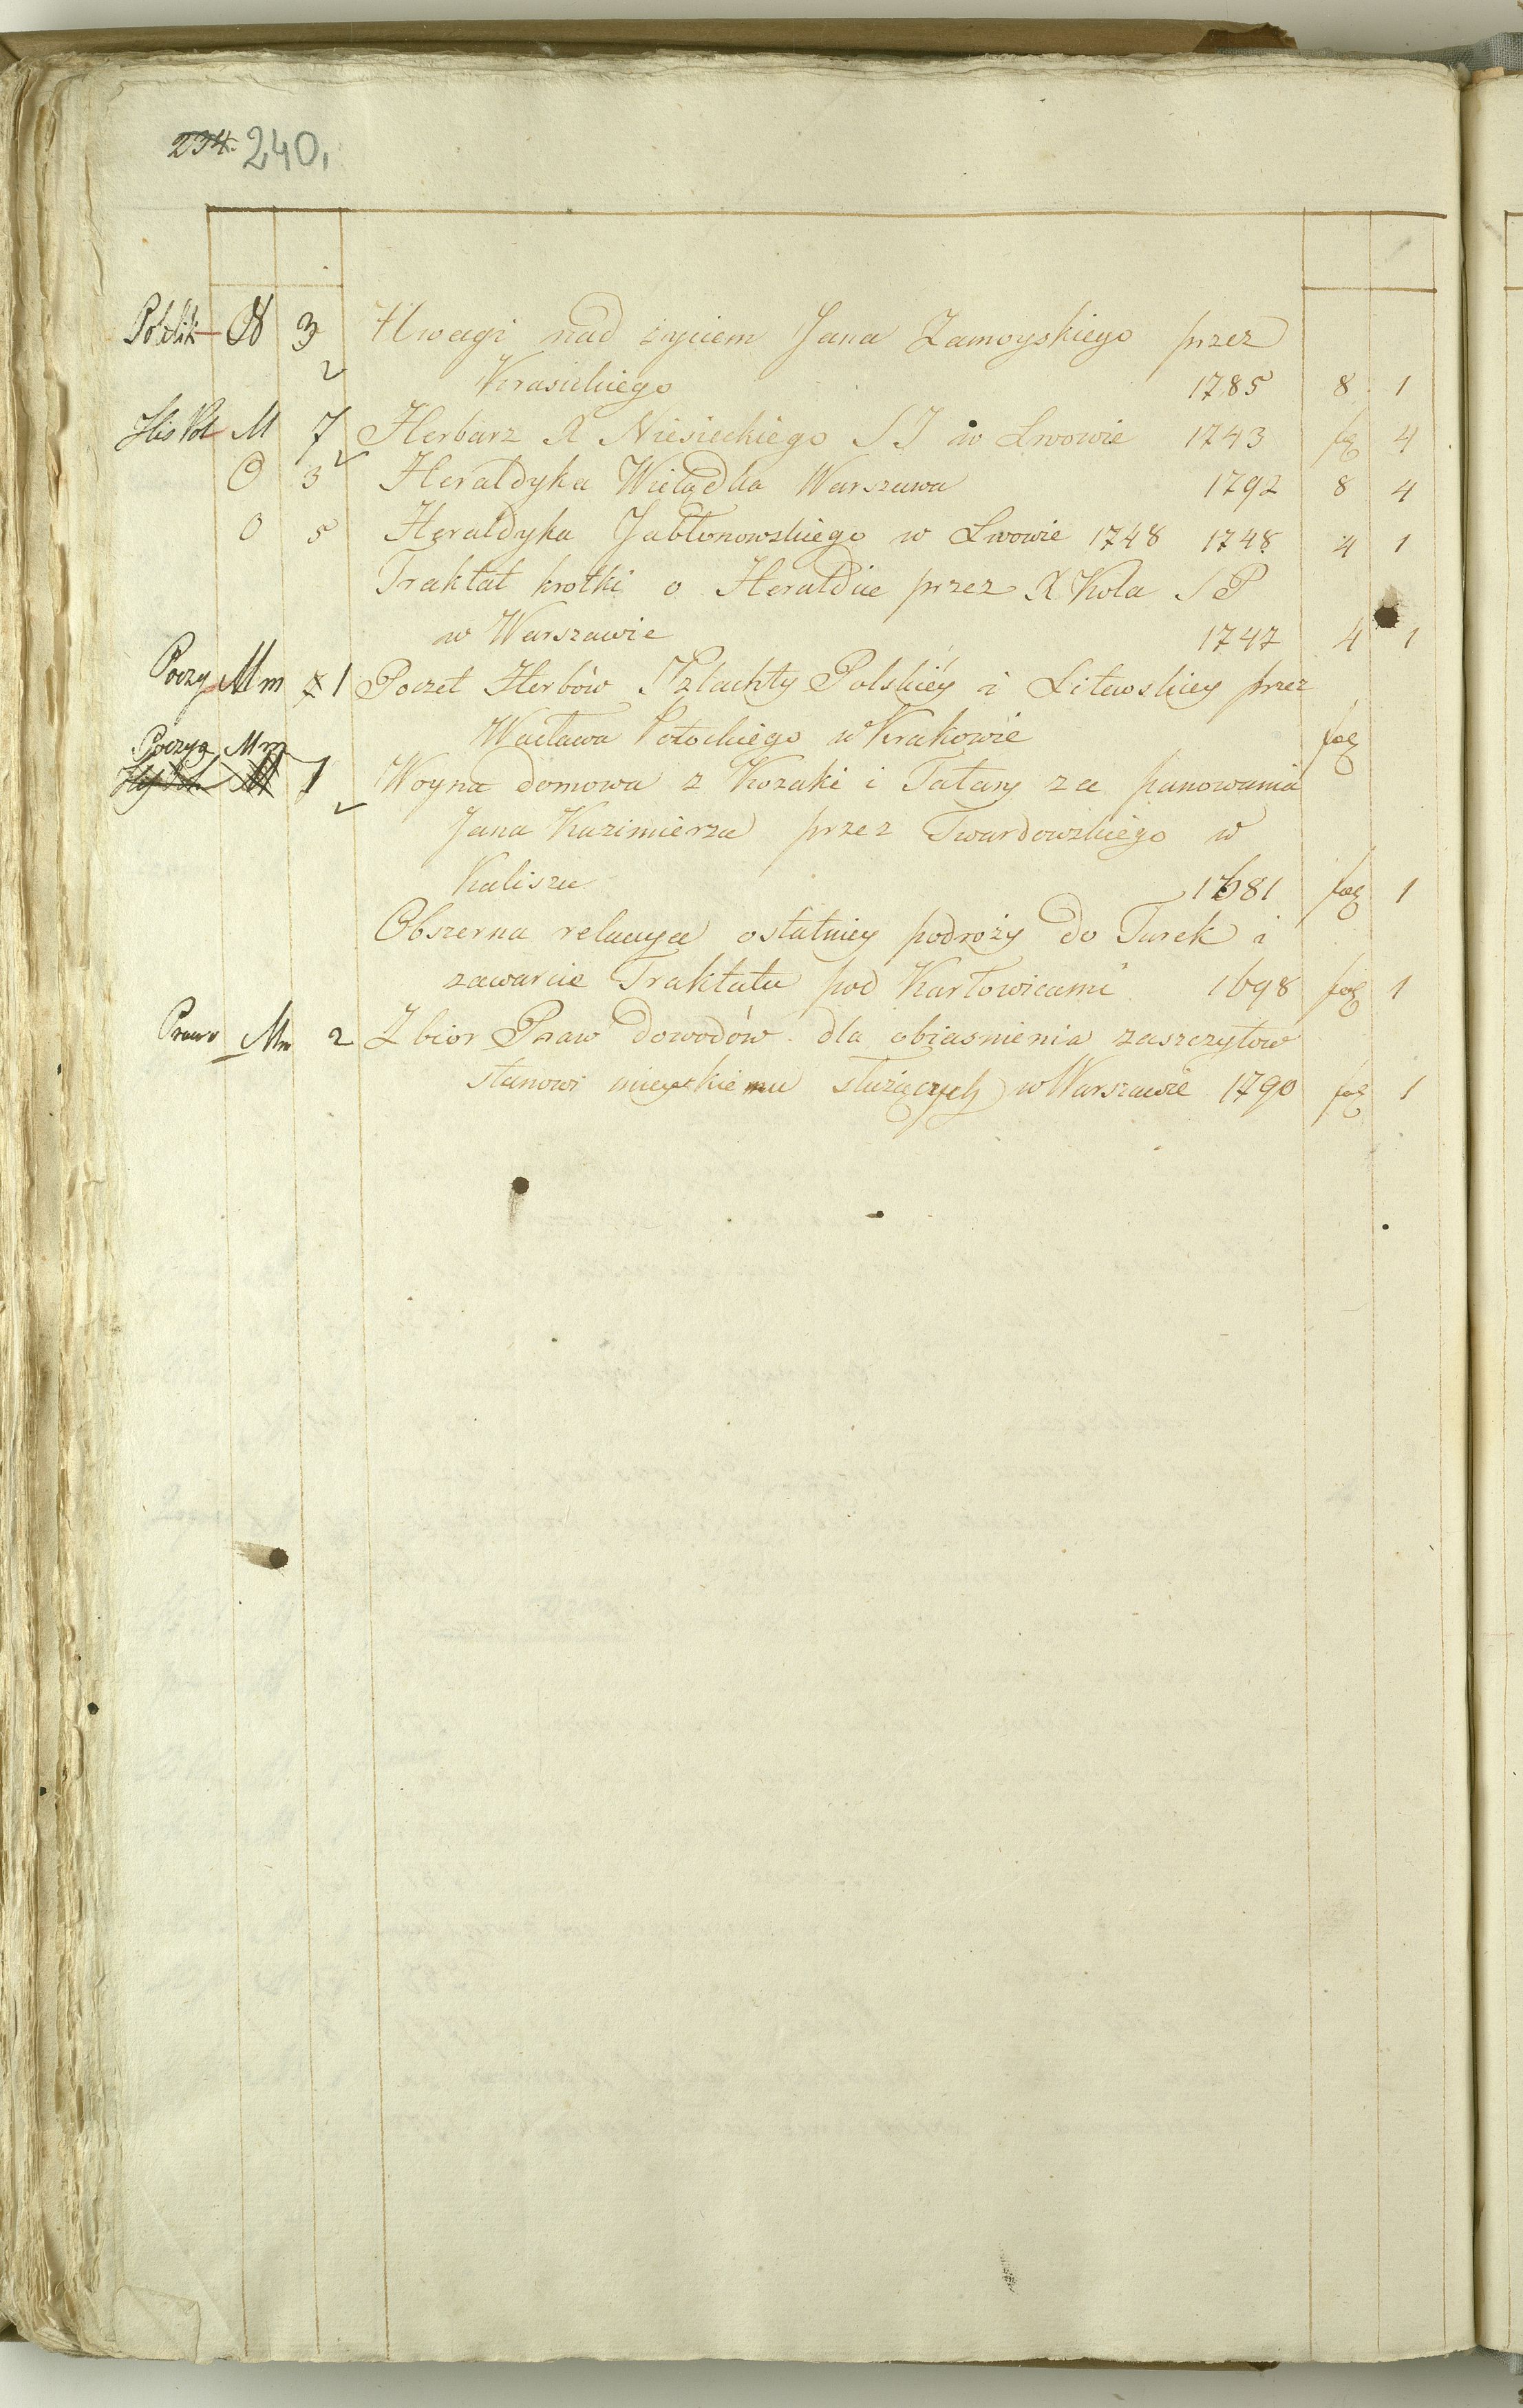 234. 240.
Polilik N 3 Uwagi nad życiem Jana Zamoyskiego przez
Krasickiego 1785 8 1
His Pol M 7 Herbarz X Niesieckiego SJ w Lwowie 1743 fol 4
O 3 Heraldyka Wielądka Warszawa 1792 8 4
O 5 Heraldyka Jabłonowskiego w Lwowie 1748 1748 4 1
Traktat krotki o Heraldice przez X Kola SP
w Warszawie 1747 4 1
Poezy Mm 1 Poczet Herbów Szlachty Polskiéy i Litewskiey przez
Wacława Potockiego w Krakowie fol
Poezya Mm
His Pol M 1 Woyna domowa z Kozaki i Tatary za panowania
Jana Kazimierza przez Twardowskiego w
Kaliszu 1681 fol 1
Obszerna relacya ostatniey podroży do Turek i
zawarcie Traktatu pod Karłowicami 1698 fol 1
Prawo Mm 2 Zbior Praw dowodów dla obiasnienia zaszczytow
stanowi mieyskiemu służących w Warszawie 1790 fol 1